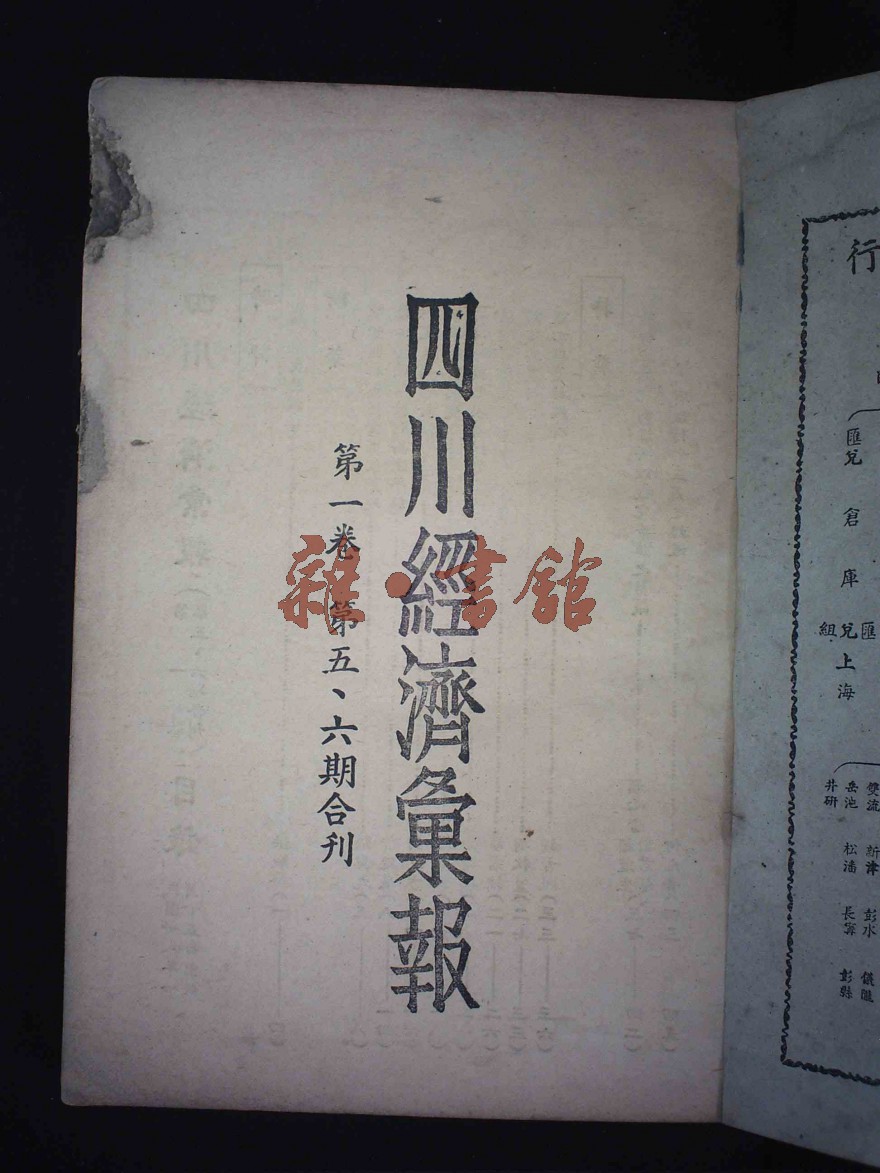 行
匯兌 倉庫 匯兌組
上海
雙流 新津 彭水 儀隴
岳池 松潘 長寧 彭縣
井研
四川經濟彙報
第一卷 第五、六期合刊
雜·書館